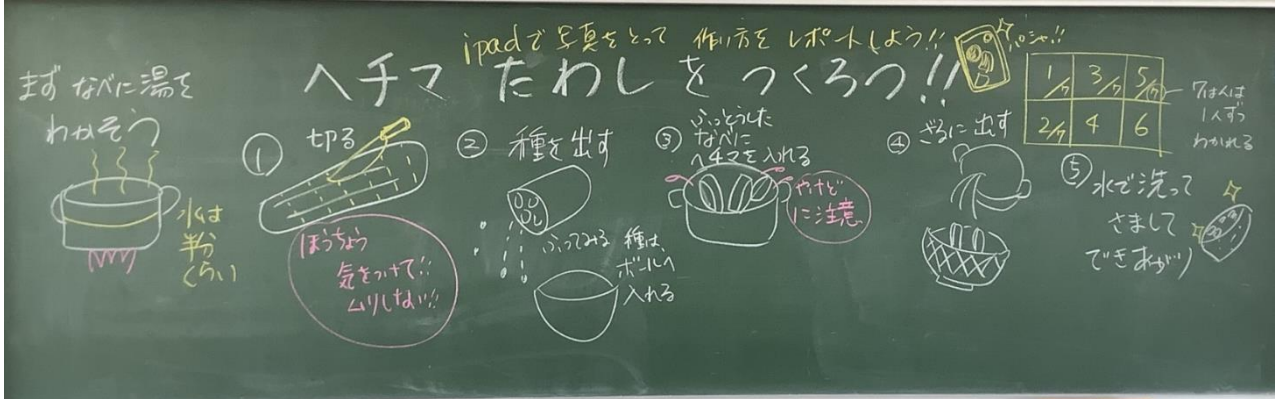 ipadで写真をとって 作り方を レポートしよう!!
パシャ!!
ヘチマ たわし を つくろう!!
まず なべに湯を
わかそう
水は
半分
くらい
① 切る
ほうちょう
気をつけて!!
ムリしない!!
② 種を出す
ふってみる
種は、
ボールへ
入れる
③ ふっとうした
なべに
ヘチマを入れる
やけど
に注意
④ ざるに出す
1/7 3/7 5/7
2/7 4 6
7はんは
1人ずつ
わかれる
⑤ 水で洗って
さまして
できあがり